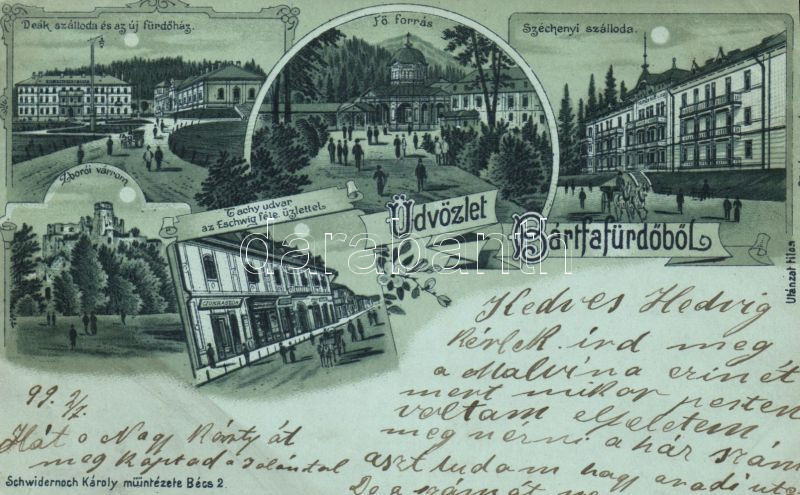 Deák szálloda és az új fürdőház.
Fő forrás
Széchenyi szálloda.
Zborói várrom
Tachy udvar
az Eschwig féle üzlettel.
Üdvözlet
Bártfafürdőből
darabanth
Utánzat tilos
Kedves Hedvig
Kérlek ird meg
a Malvina
mert mikor pesten
voltam elfeletem
meg nézni a ház szám
aszt tudom hogy aradi utc
De a számát
99. 2/7
Hát a Nagy Károly át
meg kaptad a
Schwidernoch Károly műintézete Bécs 2.